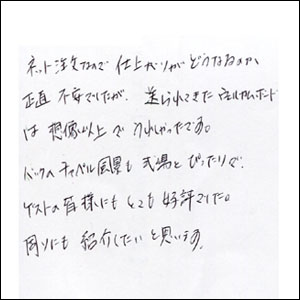 ネット注文なので 仕上がりがどうなるのか
正直 不安でしたが、送られてきたウェルカムボード
は 想像以上で うれしかったです。
バックのチャペル風景も 式場とぴったりで、
ゲストの皆様にもとても好評でした。
周りにも 紹介したいと思います。